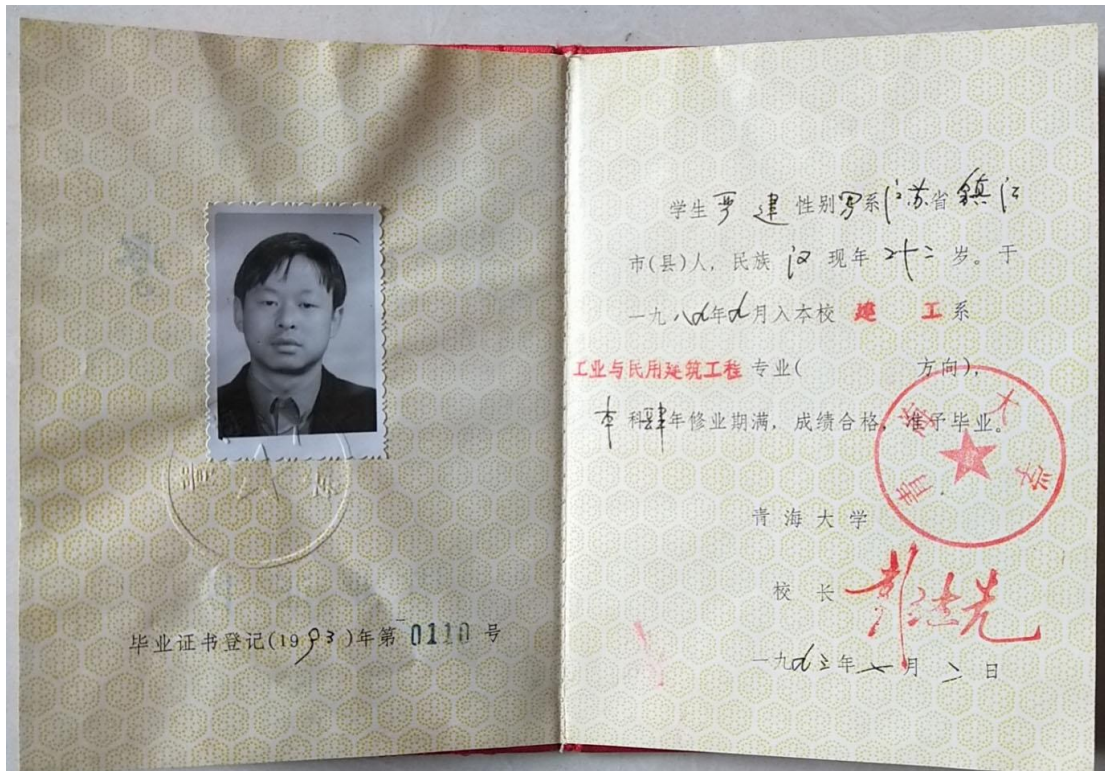 毕业证书登记(1993)年第0110号
学生 严 建 性别男系江苏省鎮江
市(县)人, 民族 汉 现年 二十二 岁。于
一九八九年九月入本校 建 工 系
工业与民用建筑工程 专业( 方向),
本 科肆年修业期满, 成绩合格, 准予毕业。
青海大学
青海大学
校 长
一九九三年七月 日